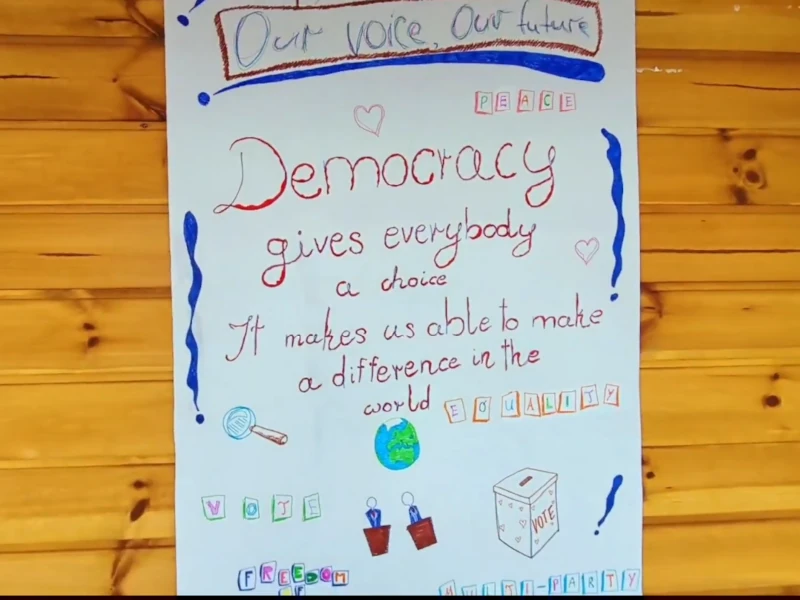 Our voice, Our future
PEACE
Democracy
gives everybody
a choice
It makes us able to make
a difference in the
world
EQUALITY
VOTE
VOTE
FREEDOM
OF
MULTI-PARTY